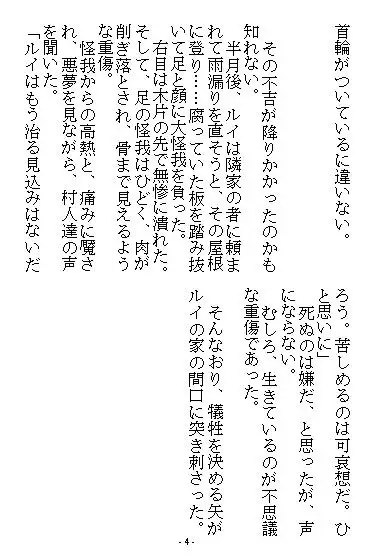 首輪がついているに違いない。
その不吉が降りかかったのかも
知れない。
半月後、ルイは隣家の者に頼ま
れて雨漏りを直そうと、その屋根
に登り……腐っていた板を踏み抜
いて足と顔に大怪我を負った。
右目は木片の先で無惨に潰れた。
そして、足の怪我はひどく、肉が
削ぎ落とされ、骨まで見えるよう
な重傷。
怪我からの高熱と、痛みに魘さ
れ、悪夢を見ながら、村人達の声
を聞いた。
「ルイはもう治る見込みはないだ
ろう。苦しめるのは可哀想だ。ひ
と思いに」
死ぬのは嫌だ、と思ったが、声
にならない。
むしろ、生きているのが不思議
な重傷であった。
そんなおり、犠牲を決める矢が
ルイの家の間口に突き刺さった。
- 4 -